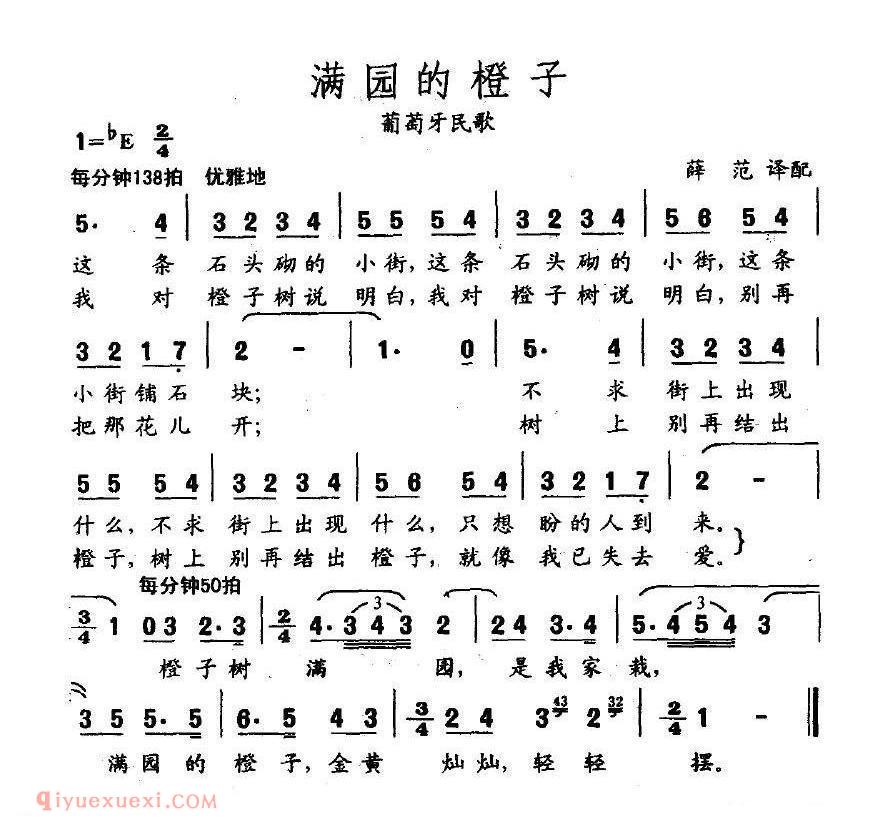 满园的橙子
葡萄牙民歌
1=♭E 2/4
薛 范 译配
每分钟138拍 优雅地
5· 4 | 3 2 3 4 | 5 5 5 4 | 3 2 3 4 | 5 6 5 4 |
这 条 石头砌的 小街,这条 石头砌的 小街,这条
我 对 橙子树说 明白,我对 橙子树说 明白,别再
3 2 1 7 | 2 - | 1· 0 | 5· 4 | 3 2 3 4 |
小街铺石 块; 不 求 街上出现
把那花儿 开; 树 上 别再结出
5 5 5 4 | 3 2 3 4 | 5 6 5 4 | 3 2 1 7 | 2 - |
什么,不求 街上出现 什么,只想 盼的人到 来。
橙子,树上 别再结出 橙子,就像 我已失去 爱。
每分钟50拍
3/4 1 0 3 2·3 | 2/4 4·3 4 3 | 2 2 4 3·4 | 5·4 5 4 3 |
橙子树 满 园,是我家栽,
3 5 5·5 | 6·5 4 3 | 3/4 2 4 3 43 2 32 | 2/4 1 - ‖
满园的 橙子,金黄 灿灿,轻轻 摆。
qiyuexuexi.COM